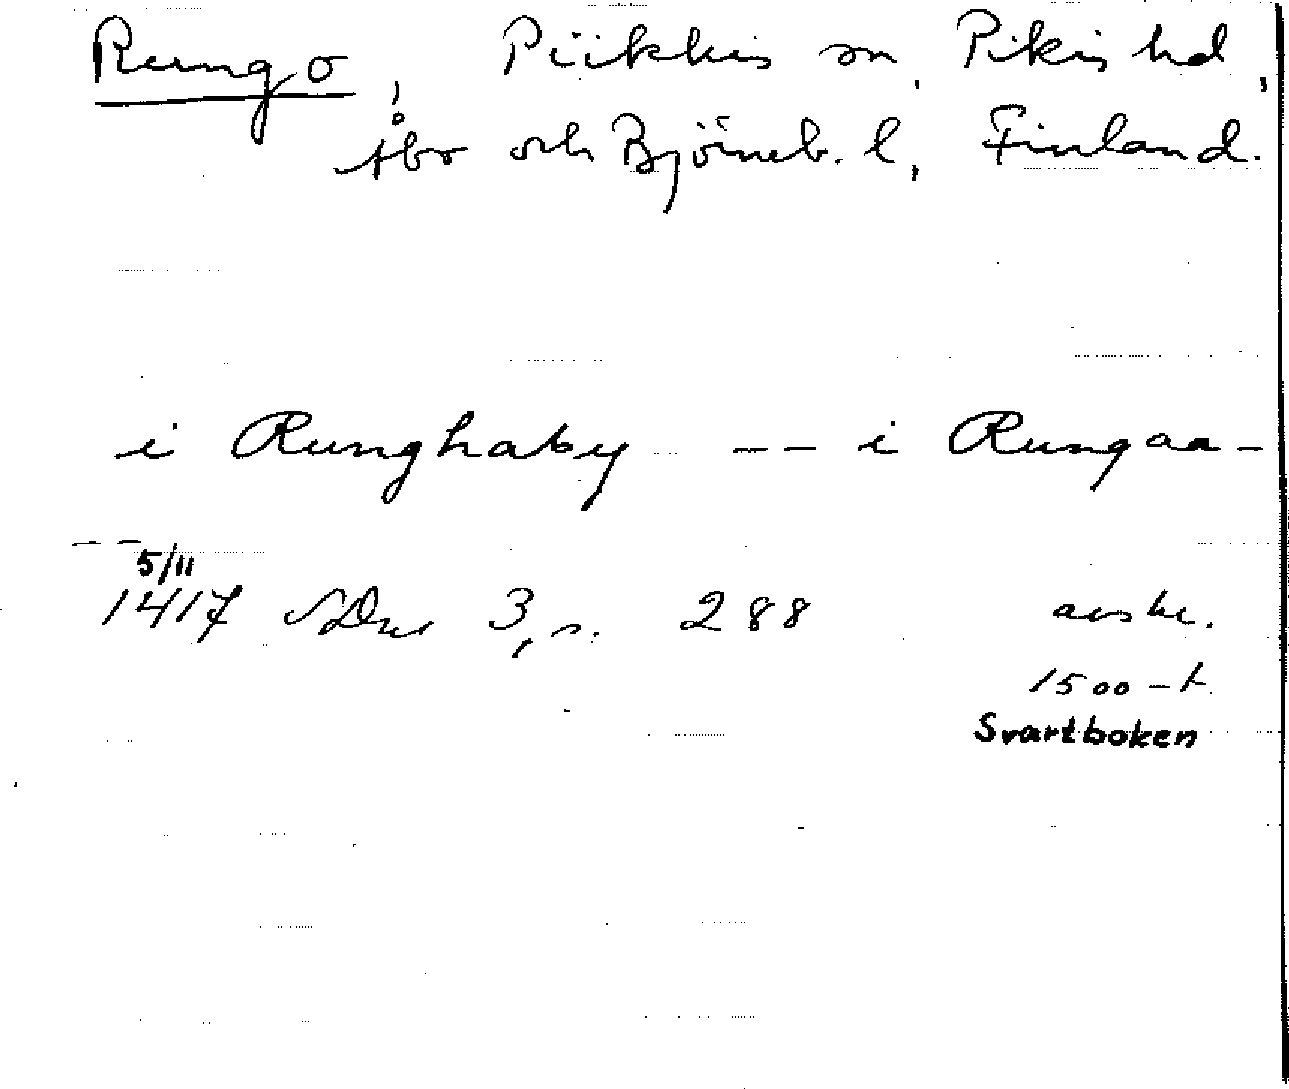 Rungo, Piikkis sn, Pikis hd,
Åbo och Björneb. l, Finland.
i Runghaby -- i Rungaa -
-- 5/11
1417 SDns 3, s. 288 avskr.
1500-t.
Svartboken